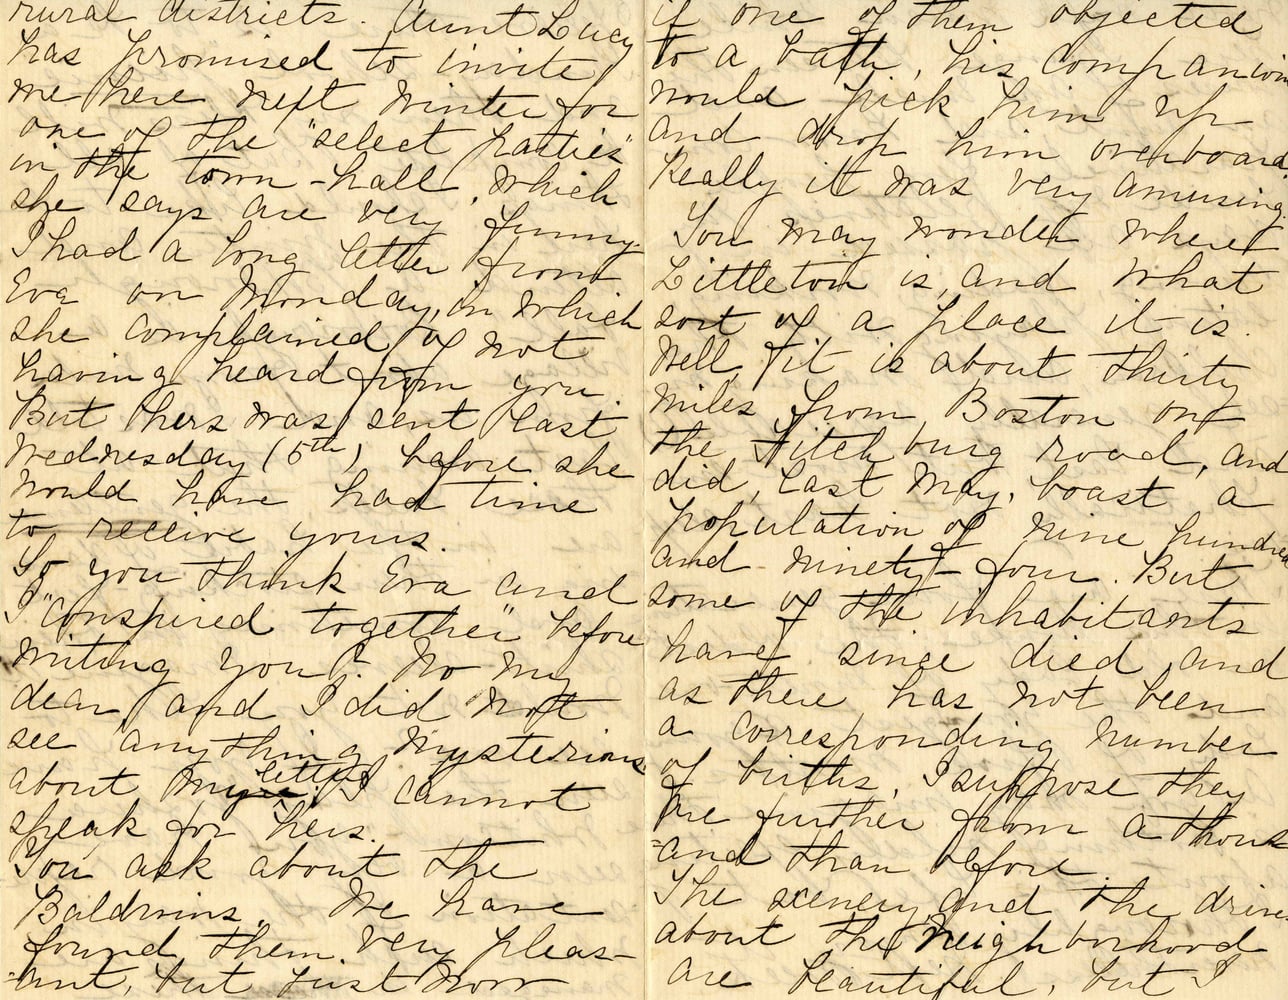 rural districts. Aunt Lucy
has promised to invite
me here next winter for
one of the "select parties"
in the town-hall, which
she says are very funny.
I had a long letter from
Eva on Monday, in which
she complained of not
having heard from you.
But hers was sent last
Wednesday (5th), before she
would have had time
to receive yours.
So you think Eva and
I "conspired together" before
writing you? No my
dear, and I did not
see anything mysterious
about my letter. I cannot
speak for hers.
You ask about the
Baldwins. We have
found them very pleas-
-ant, but just now
if one of them objected
to a bath, his companion
would pick him up
and drop him overboard.
Really it was very amusing.
You may wonder where
Littleton is, and what
sort of a place it is.
Well, it is about thirty
miles from Boston on
the Fitchburg road, and
did, last May, boast a
population of nine hundred
and ninety-four. But
some of the inhabitants
have since died, and
as there has not been
a corresponding number
of births, I suppose they
are further from a thous-
-and than before.
The scenery and the drives
about the neighborhood
are beautiful, but I